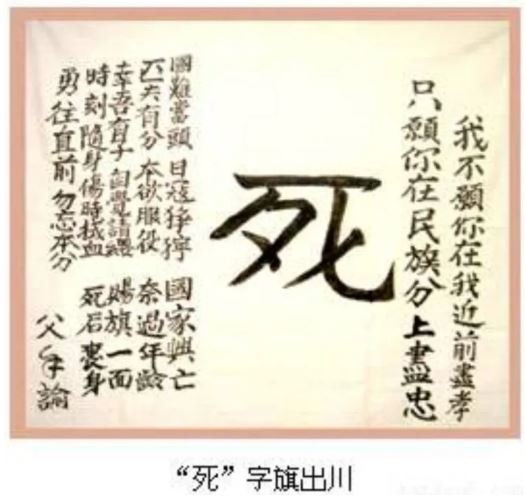 我不願你在我近前盡孝
只願你在民族分上盡忠
死
國難當頭 日寇猙獰
國家興亡
匹夫有分 本欲服役
奈過年齡
幸吾有子 自覺請纓
賜旗一面
時刻隨身 傷時拭血
死后裹身
勇往直前 勿忘本分
父手諭
“死”字旗出川